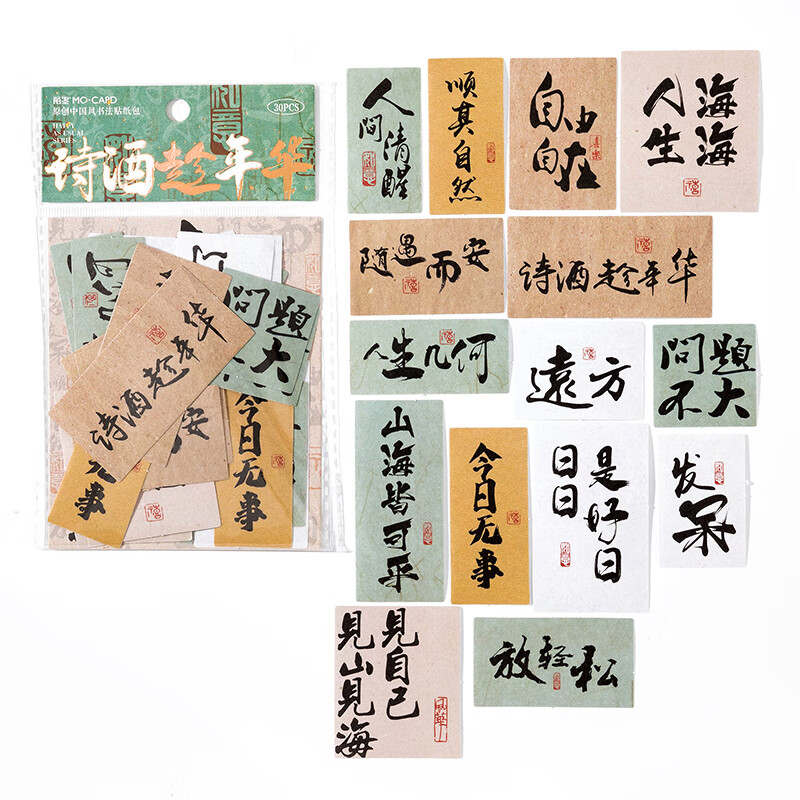 陌墨 MO·CARD
原创中国风书法贴纸包
HAPPY
AS USUAL
SERIES
30PCS
诗酒趁年华
问题
大
诗酒趁年华
安
今日无事
无事
人间
清醒
顺其自然
自由
自在
人生
海海
随遇而安
诗酒趁年华
人生几何
遠方
问题
不大
山海皆可平
今日无事
日日
是好日
发呆
见山见海
见自己
放轻松